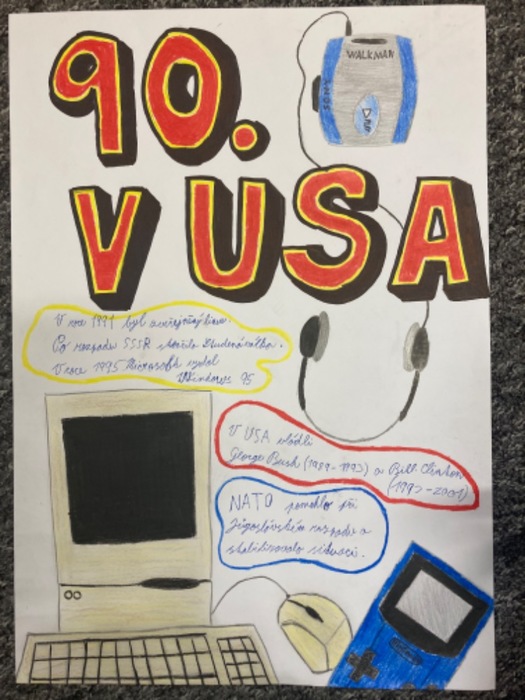 90.
WALKMAN
SONY
V USA
V roce 1991 byl zveřejněný Linux.
Po rozpadu SSSR skončila Studená válka.
V roce 1995 Microsoft vydal
Windows 95
V USA vládli
George Bush (1989-1993) a Bill Clinton
(1993-2001)
NATO pomohlo při
Jugoslávském rozpadu a
stabilizovalo situaci.